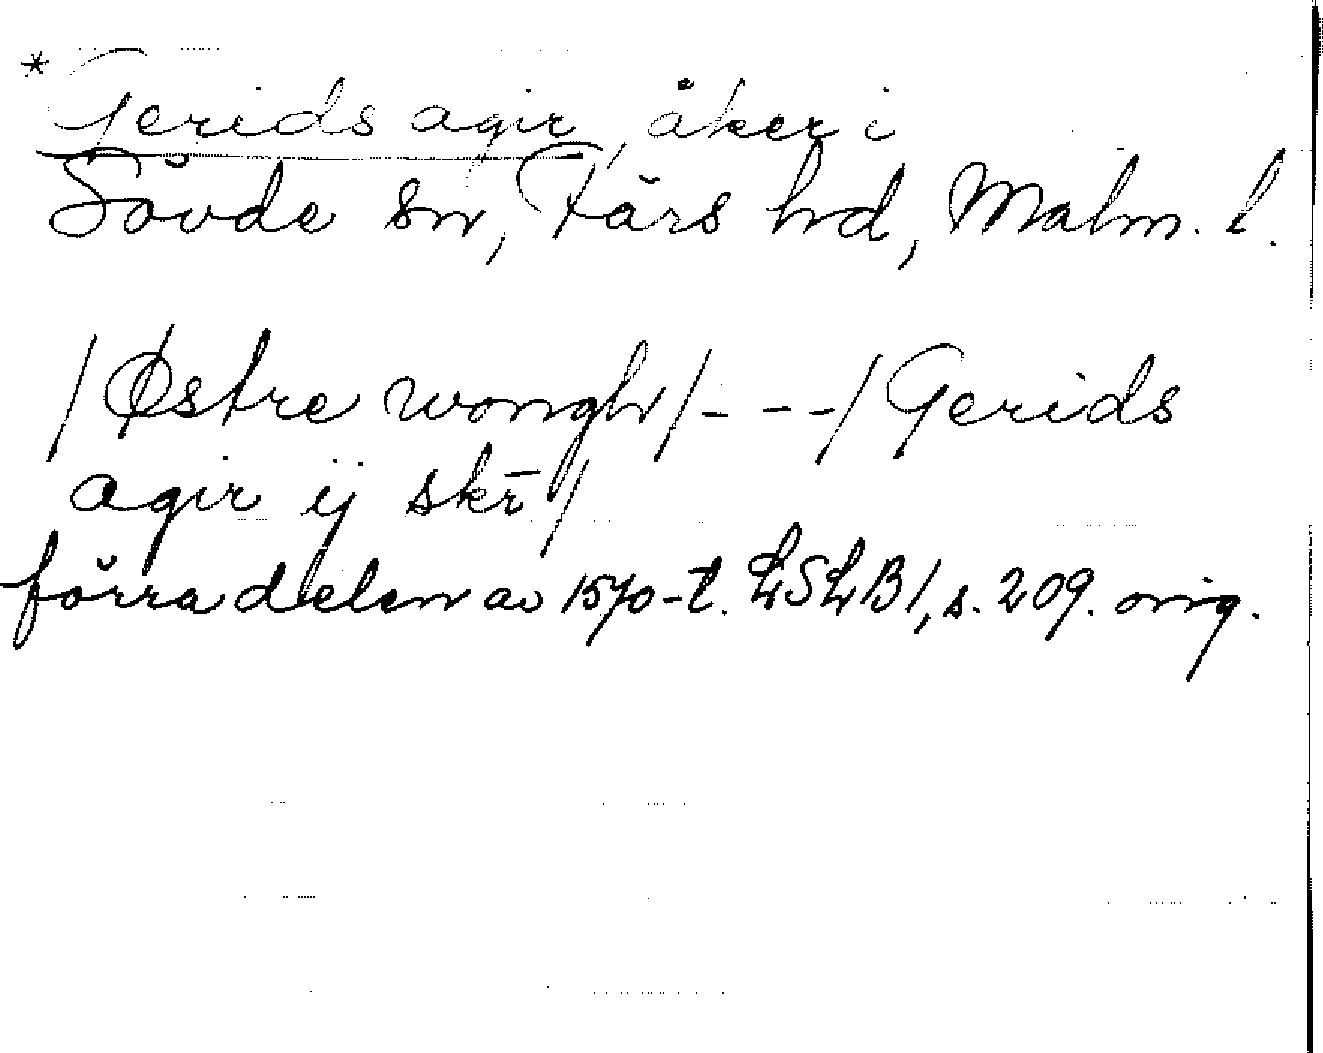 * Gerids agir, åker i
Sövde sn, Färs hd, Malm. l.
/Østre wongh/---/Gerids
agir ij skr̄/
förra delen av 1570-t. LSLB1, s. 209. orig.